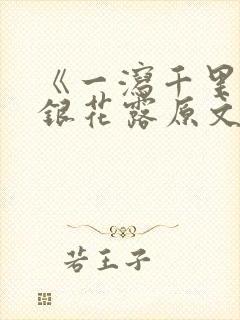 《一泻千里
银花露原文
若王子